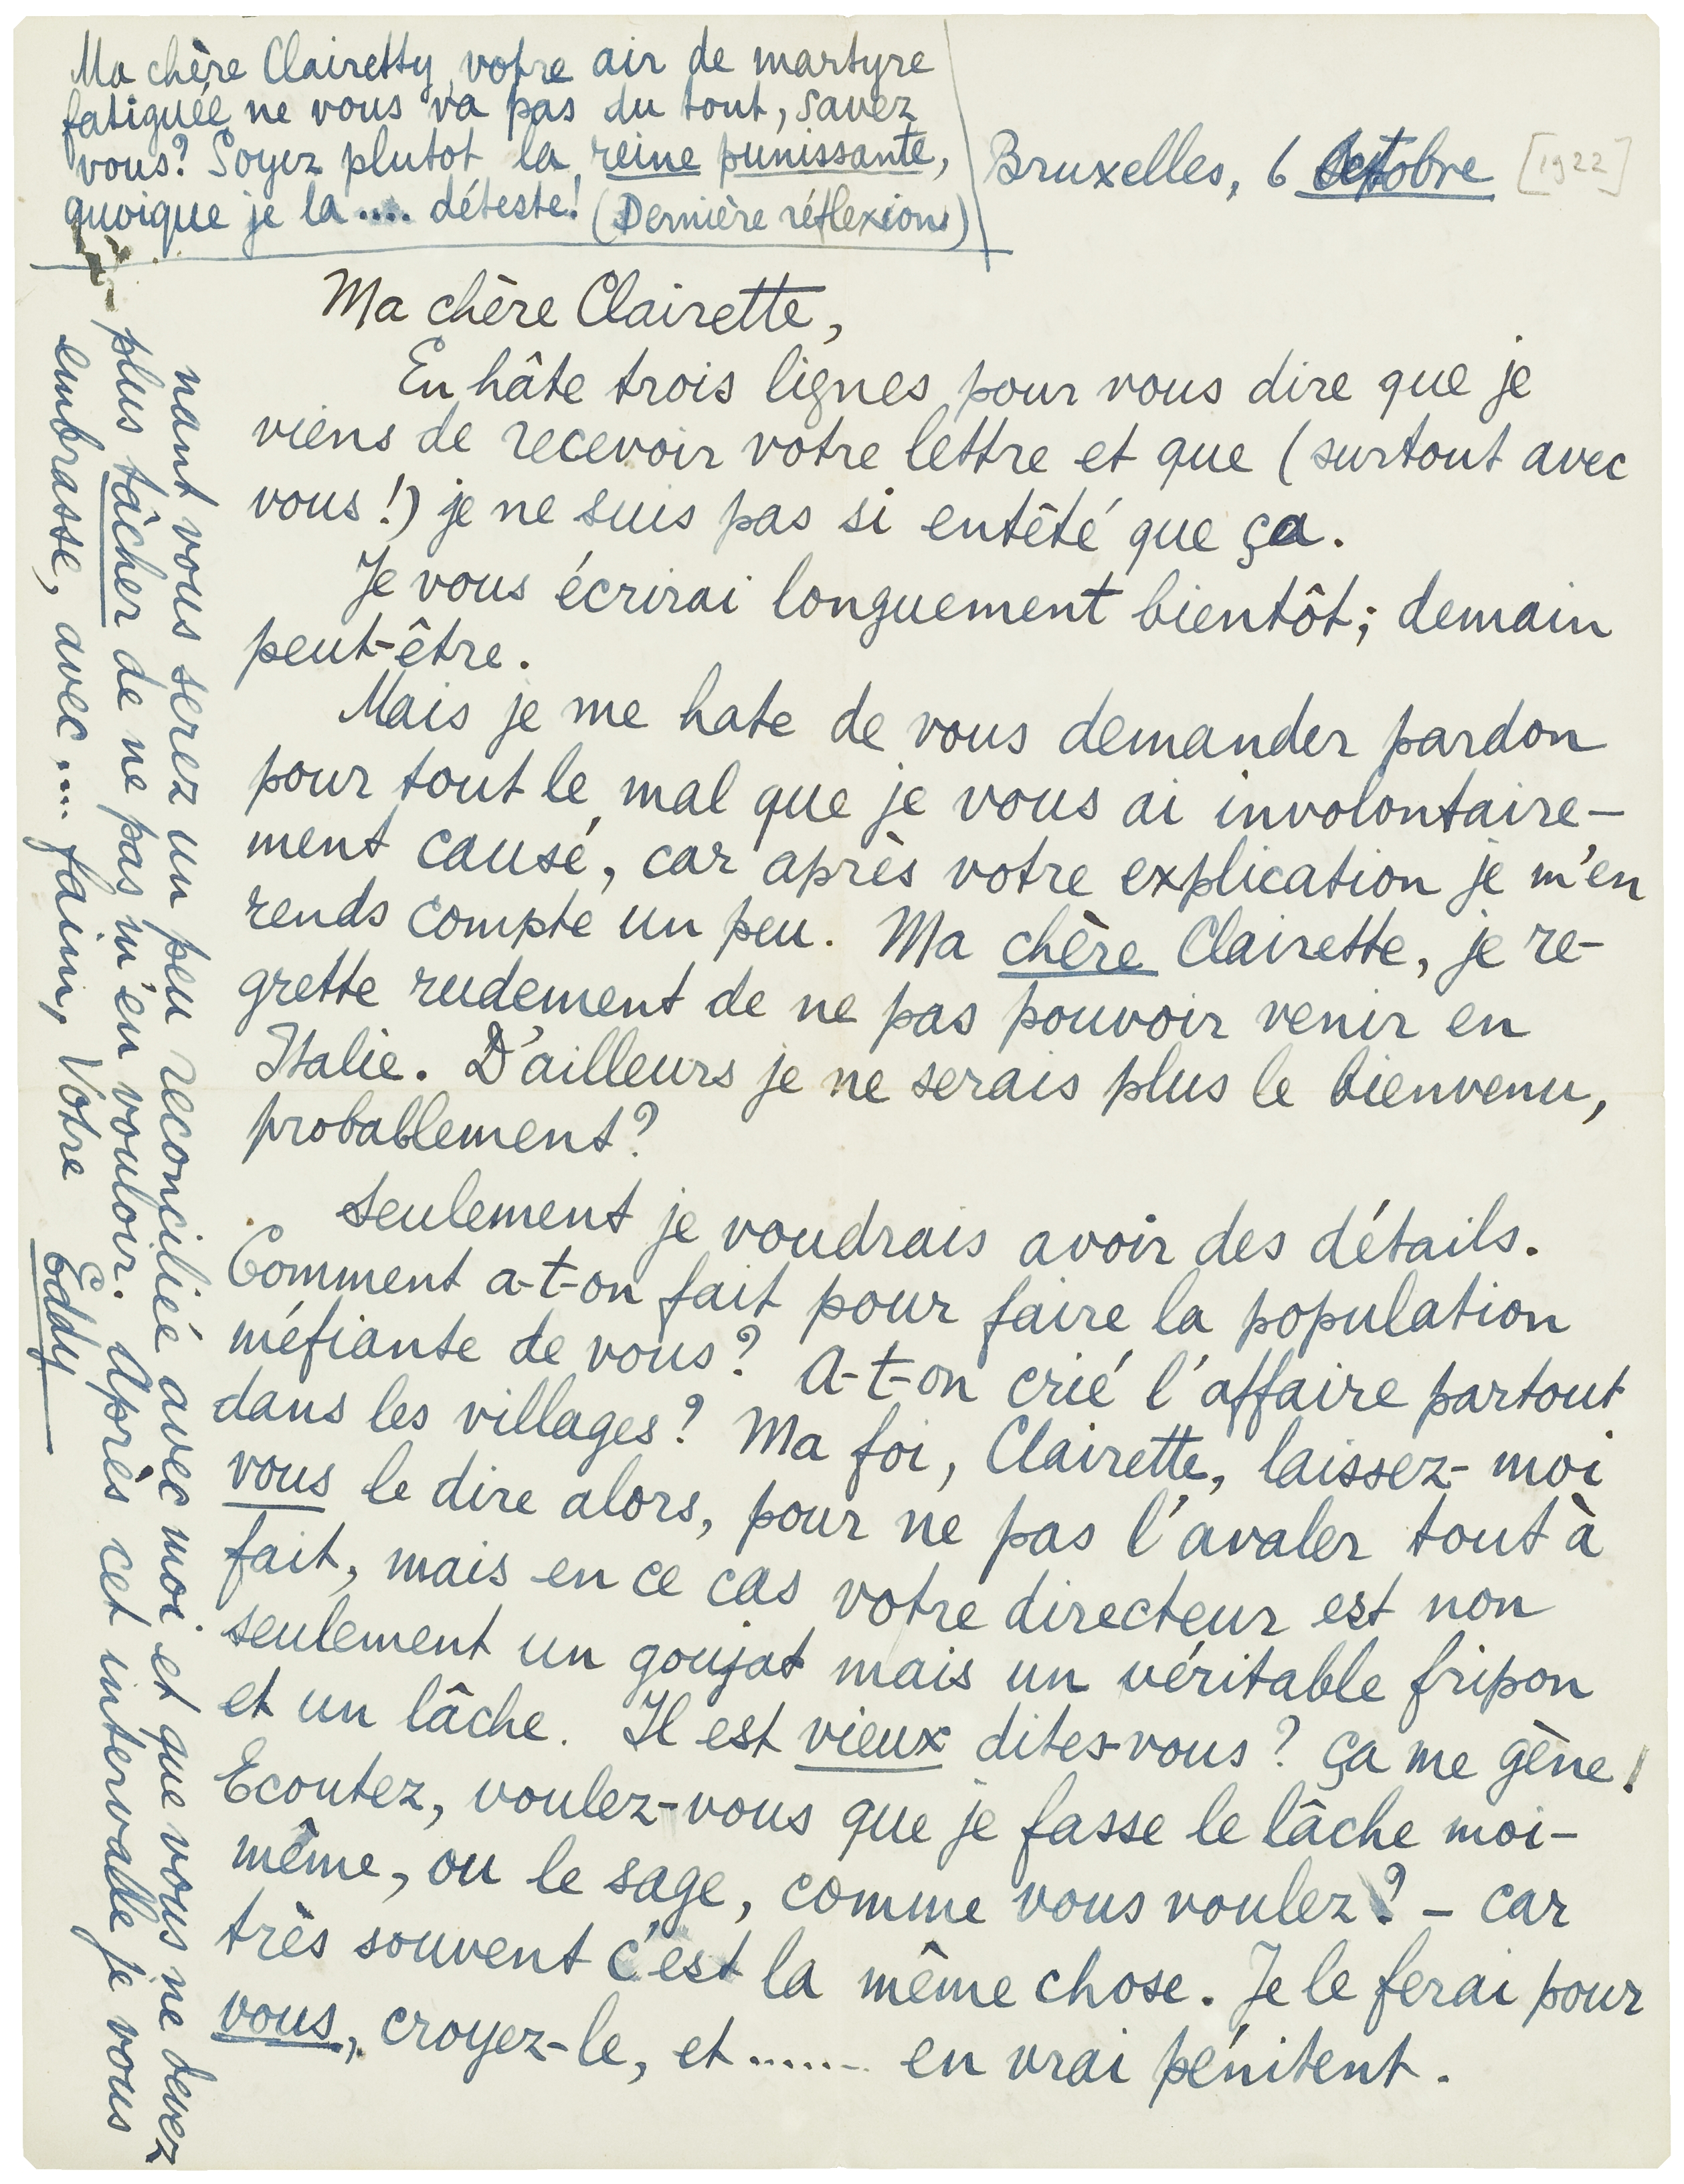 Ma chère Clairetty, votre air de martyre
fatiguée ne vous va pas du tout, savez
vous? Soyez plutot la reine punissante,
quoique je la .... déteste! (Dernière réflexions)
Bruxelles, 6 Octobre [1922]
Ma chère Clairette,
En hâte trois lignes pour vous dire que je
viens de recevoir votre lettre et que (surtout avec
vous!) je ne suis pas si entêté que ça.
Je vous écrirai longuement bientôt; demain
peut-être.
Mais je me hate de vous demander pardon
pour tout le mal que je vous ai involontaire-
ment causé, car après votre explication je m'en
rends compte un peu. Ma chère Clairette, je re-
grette rudement de ne pas pouvoir venir en
Italie. D'ailleurs je ne serais plus le bienvenu,
probablement?
Seulement je voudrais avoir des détails.
Comment a-t-on fait pour faire la population
méfiante de vous? A-t-on crié l'affaire partout
dans les villages? Ma foi, Clairette, laissez-moi
vous le dire alors, pour ne pas l'avaler tout à
fait, mais en ce cas votre directeur est non
seulement un goujat mais un véritable fripon
et un lâche. Il est vieux dites-vous? Ça me gène!
Ecoutez, voulez-vous que je fasse le lâche moi-
même, ou le sage, comme vous voulez? - car
très souvent c'est la même chose. Je le ferai pour
vous, croyez-le, et ...... en vrai pénitent.
nant vous serez un peu reconciliée avec moi et que vous ne devez
plus tâcher de ne pas m'en vouloir. Après cet intervalle je vous
embrasse, avec .... faim, Votre
Eddy